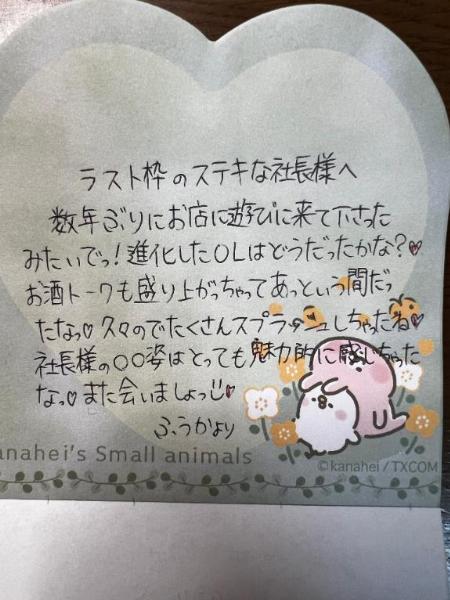 ラスト枠のステキな社長様へ
数年ぶりにお店に遊びに来て下さった
みたいでっ!進化したOLはどうだったかな?♥
お酒トークも盛り上がっちゃってあっという間だっ
たなっ♥久々のでたくさんスプラッシュしちゃったね♥
社長様の〇〇姿はとっても魅力的に感じちゃった
なっ♥また会いましょっ♥
ふうかより
anahei's Small animals
©kanahei / TXCOM